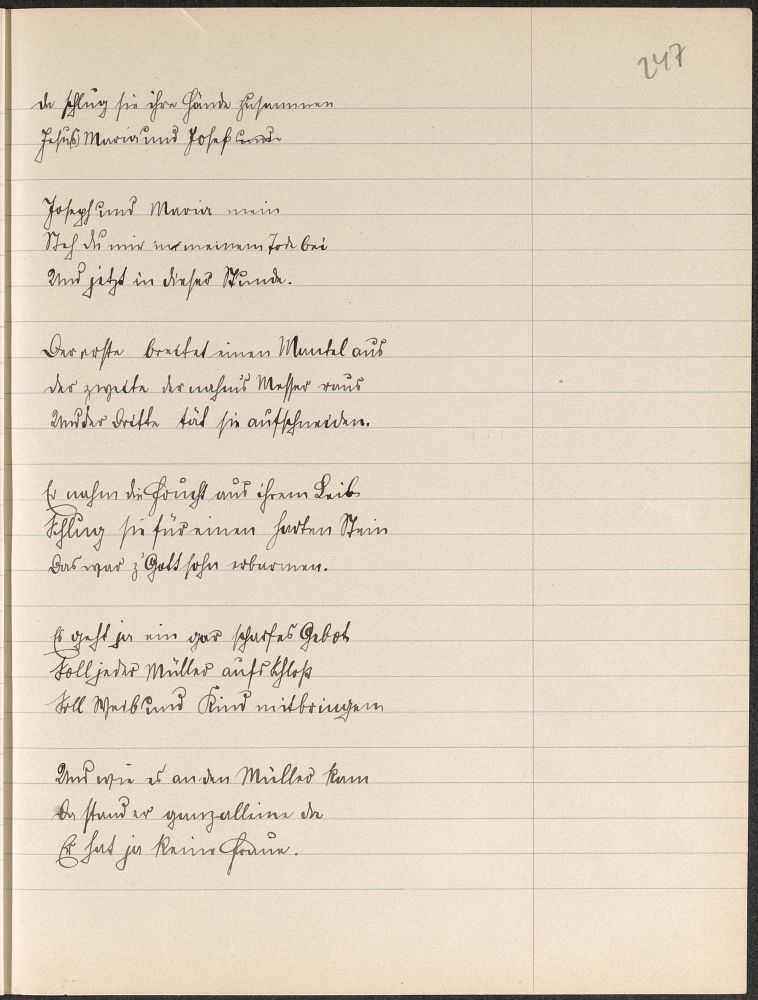 247
da schlug sie ihre Hände zusammen
Jesus Maria und Josef

Joseph und Maria mein
Steh du mir in meinem Tode bei
Und jetzt in dieser Stunde.

Der erste breitet einen Mantel aus
der zweite der nahm's Messer raus
Und der dritte tät sie aufschneiden.

Er nahm die Frucht aus ihrem Leib
Schlug sie für einen harten Stein
Das war z' Gott sohn erbarmen.

Es geht ja ein gar scharfes Gebot
Soll jeder Müller aufs Schloß
Soll Weib und Kind mitbringen

Und wie es an den Müller kam
Da stand er ganz alleine da
Er hat ja keine Fraue.